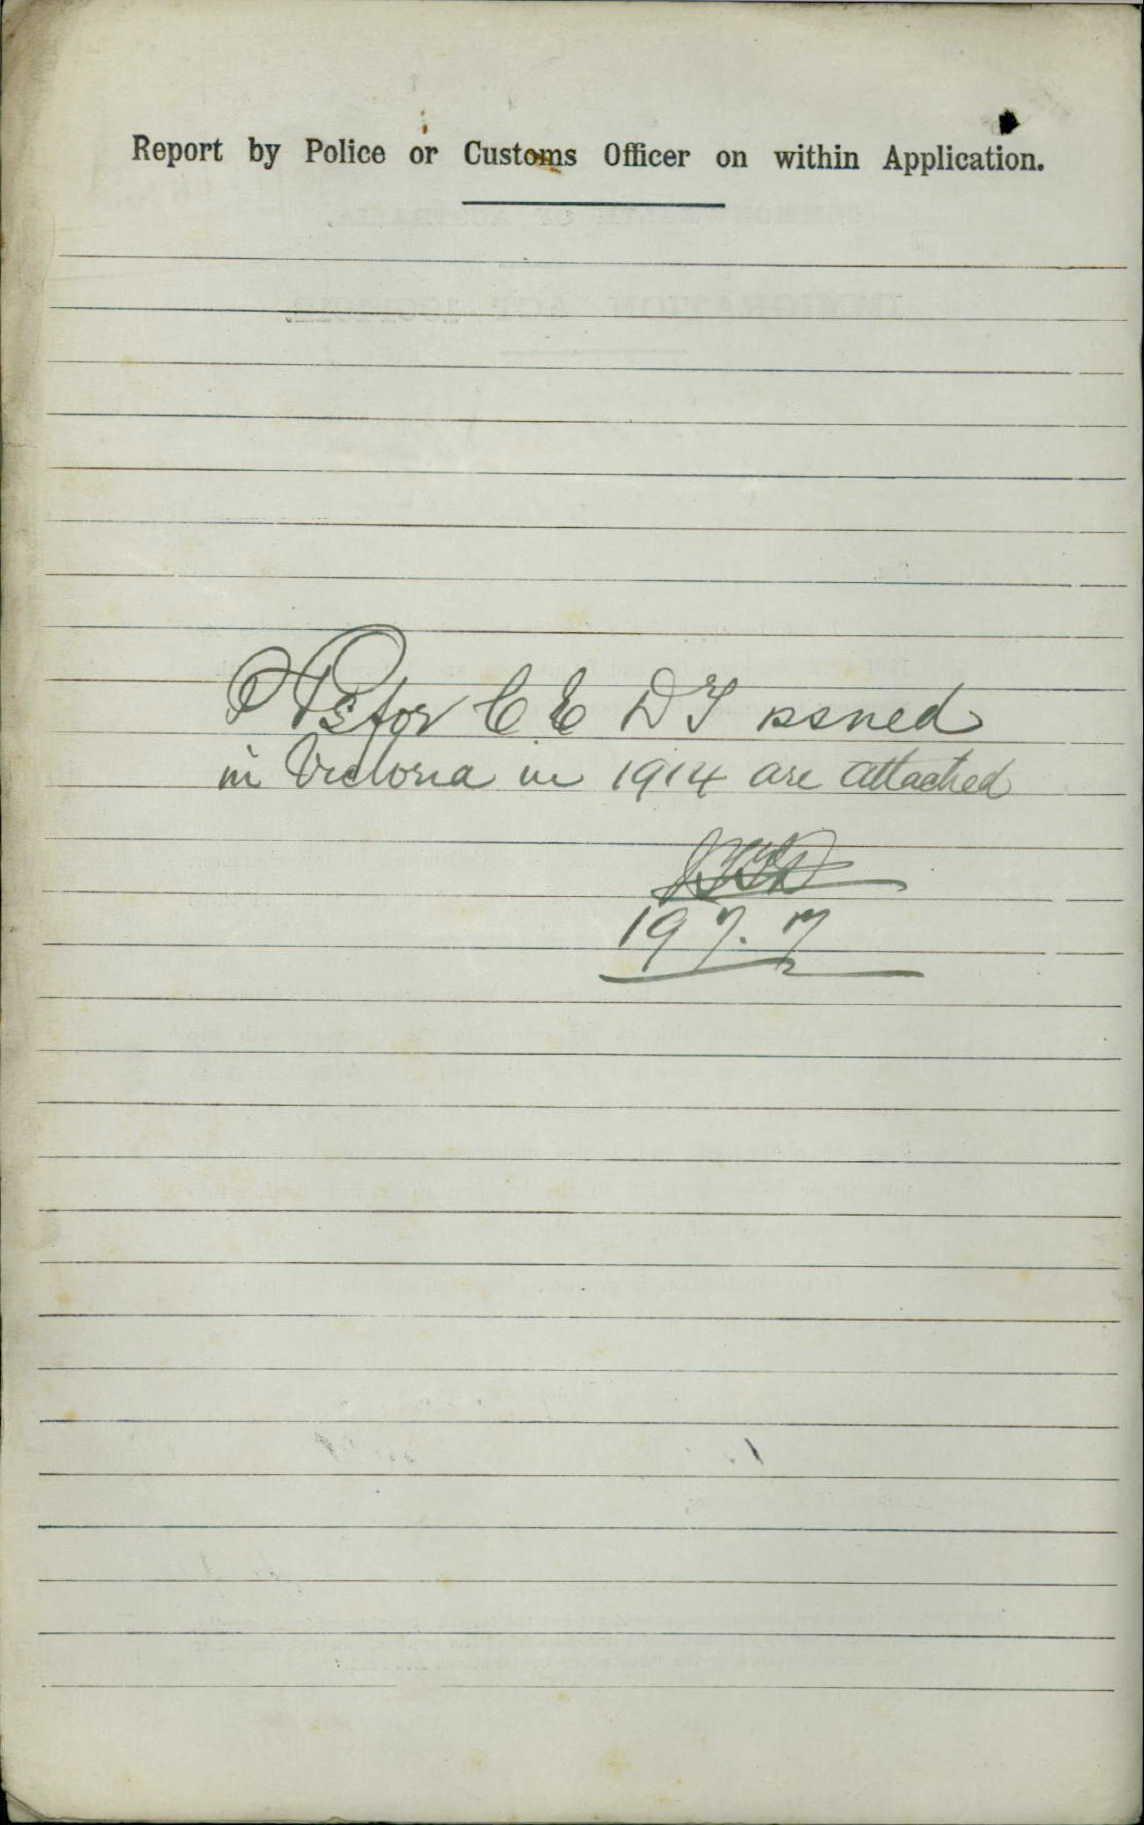 Report by Police or Customs Officer on within Application.
for C E D T issued
in Victoria in 1914 are attached
19 7. 17